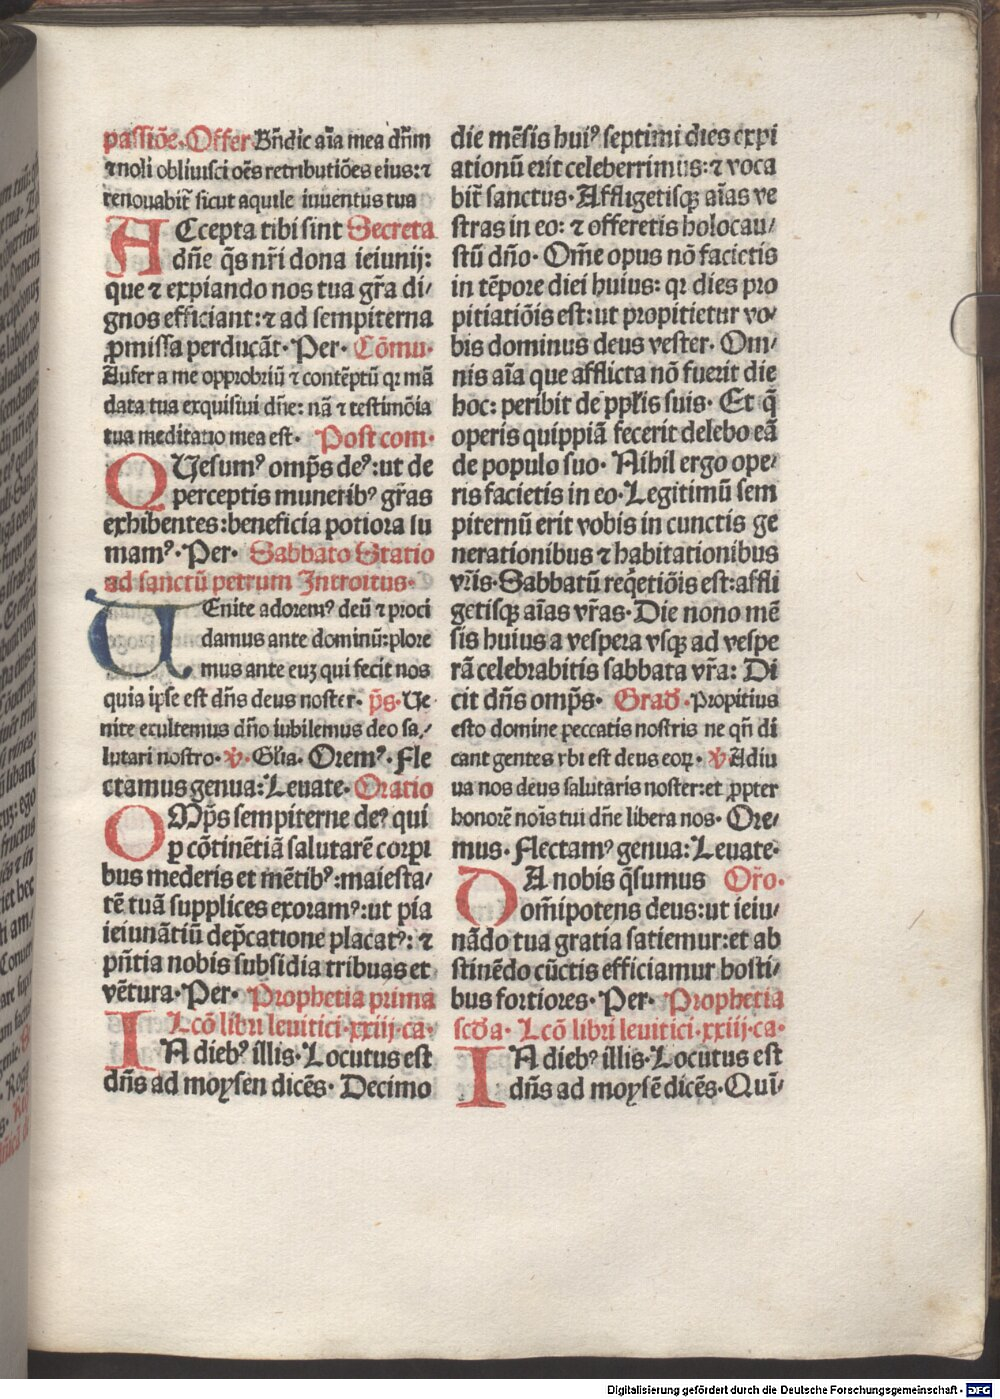 passiōe. Offer Bñdic aīa mea dñm
⁊ noli obliuisci oēs retributiōes eius: ⁊
renouabit̄ sicut aquile iuuentus tua
ACcepta tibi sint Secreta
dñe q̄s nr̄i dona ieiunij:
que ⁊ expiando nos tua gr̄a di/
gnos efficiant: ⁊ ad sempiterna
ꝓmissa perducāt. Per. Cōmu.
Aufer a me opprobriū ⁊ contēptū qꝛ mā
data tua exquisiui dñe: nā ⁊ testimōia
tua meditatio mea est. Post com.
QUesumꝰ omp̄s deꝰ: ut de
perceptis muneribꝰ gr̄as
exhibentes: beneficia potiora su
mamꝰ. Per. Sabbato Statio
ad sanctū petrum Introitus.
UEnite adoremꝰ deū ⁊ proci
damus ante dominū: plore
mus ante euꝫ qui fecit nos
quia ipse est dñs deus noster. p̄s. Ue
nite exultemus dño iubilemus deo sa/
lutari nostro. ꝟ. Glīa. Oremꝰ. Fle
ctamus genua: Leuate. Oratio
OMp̄s sempiterne deꝰ qui
ꝑ cōtinētiā salutarē corꝑi
bus mederis et mētibꝰ: maiesta/
tē tuā supplices exoramꝰ: ut pia
ieiunātiū dep̄catione placatꝰ: ⁊
p̄ñtia nobis subsidia tribuas et
vētura. Per. Prophetia prima
Lcō libri leuitici. xxiij. ca.
IN diebꝰ illis. Locutus est
dñs ad moysen dicēs. Decimo
die mēsis huiꝰ septimi dies expi
ationū erit celeberrimus: ⁊ voca
bit̄ sanctus. Affligetisqꝫ aīas ve
stras in eo: ⁊ offeretis holocau/
stū dño. Om̄e opus nō facietis
in tēpore diei huius: qꝛ dies pro
pitiatiōis est: ut propitietur vo/
bis dominus deus vester. Om/
nis aīa que afflicta nō fuerit die
hoc: peribit de pp̄lis suis. Et q̄
operis quippiā fecerit delebo eā
de populo suo. Nihil ergo ope/
ris facietis in eo. Legitimū sem
piternū erit vobis in cunctis ge
nerationibus ⁊ habitationibus
vr̄is. Sabbatū req̄etiōis est: affli
getisqꝫ aīas vr̄as. Die nono mē
sis huius a vespera vsqꝫ ad vespe
rā celebrabitis sabbata vr̄a: Di
cit dñs omp̄s. Grad̄. Propitius
esto domine peccatis nostris ne qñ di
cant gentes vbi est deus eoꝝ. ꝟ Adiu
ua nos deus salutaris noster: et ꝓpter
honorē noīs tui dñe libera nos. Ore/
mus. Flectamꝰ genua: Leuate.
DA nobis q̄sumus Or̄o.
om̄ipotens deus: ut ieiu/
nādo tua gratia satiemur: et ab
stinēdo cūctis efficiamur hosti/
bus fortiores. Per. Prophetia
scd̄a. Lcō libri leuitici. xxiij. ca.
IN diebꝰ illis. Locutus est
dñs ad moysē dicēs. Quī/
Digitalisierung gefördert durch die Deutsche Forschungsgemeinschaft - DFG